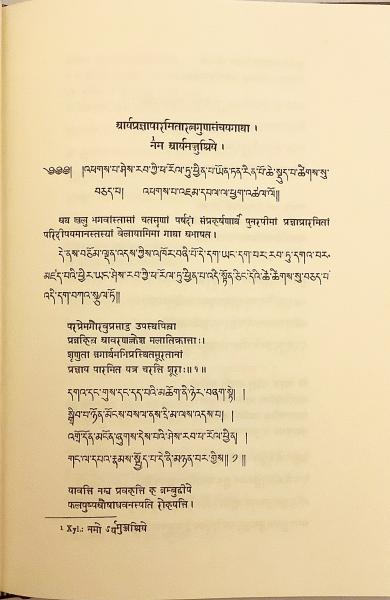 आर्यप्रज्ञापारमितारत्नगुणसंचयगाथा ।
नम आर्यमञ्जुश्रिये ।
༄༅༅། །འཕགས་པ་ཤེས་རབ་ཀྱི་ཕ་རོལ་ཏུ་ཕྱིན་པ་ཡོན་ཏན་རིན་པོ་ཆེ་སྡུད་པ་ཚིགས་སུ་
བཅད་པ། འཕགས་པ་འཇམ་དཔལ་ལ་ཕྱག་འཚལ་ལོ། །
अथ खलु भगवांस्तासां चतसृणां पर्षदां संप्रहर्षणार्थं पुनरपीमां प्रज्ञापारमितां
परिदीपयमानस्तस्यां वेलायामिमा गाथा अभाषत ।
དེ་ནས་བཅོམ་ལྡན་འདས་ཀྱིས་འཁོར་བཞི་པོ་དེ་དག་ཡང་དག་པར་རབ་ཏུ་དགའ་བར་
མཛད་པའི་ཕྱིར་ཡང་ཤེས་རབ་ཀྱི་ཕ་རོལ་ཏུ་ཕྱིན་པ་འདི་སྟོན་ཅིང་དེའི་ཚེ་ཚིགས་སུ་བཅད་པ་
འདི་དག་བཀའ་སྩལ་ཏོ། །
परप्रेमगौरवप्रसाद उपस्थपित्वा
प्रजहित्व आवरणक्लेश मलातिक्रान्ताः ।
शृणुता जगार्थमभिप्रस्थितसूरतानां
प्रज्ञाय पारमित यत्र चरन्ति शूराः ॥१॥
དགའ་དང་གུས་དང་དད་པའི་མཆོག་ནི་ཉེར་བཞག་སྟེ། །
སྒྲིབ་པ་ཉོན་མོངས་བསལ་ནས་དྲི་མ་ལས་འདས་པ། །
འགྲོ་དོན་མངོན་ཞུགས་དེས་པའི་ཤེས་རབ་ཕ་རོལ་ཕྱིན། །
གང་ལ་དཔའ་རྣམས་སྤྱོད་པ་དེ་ནི་མཉན་པར་གྱིས༎ ༡ ༎
यावन्ति नद्य प्रवहन्ति ह जम्बुद्वीपे
फलपुष्पऔषधिवनस्पति रोहयन्ति ।
1 Xyl.: नमो